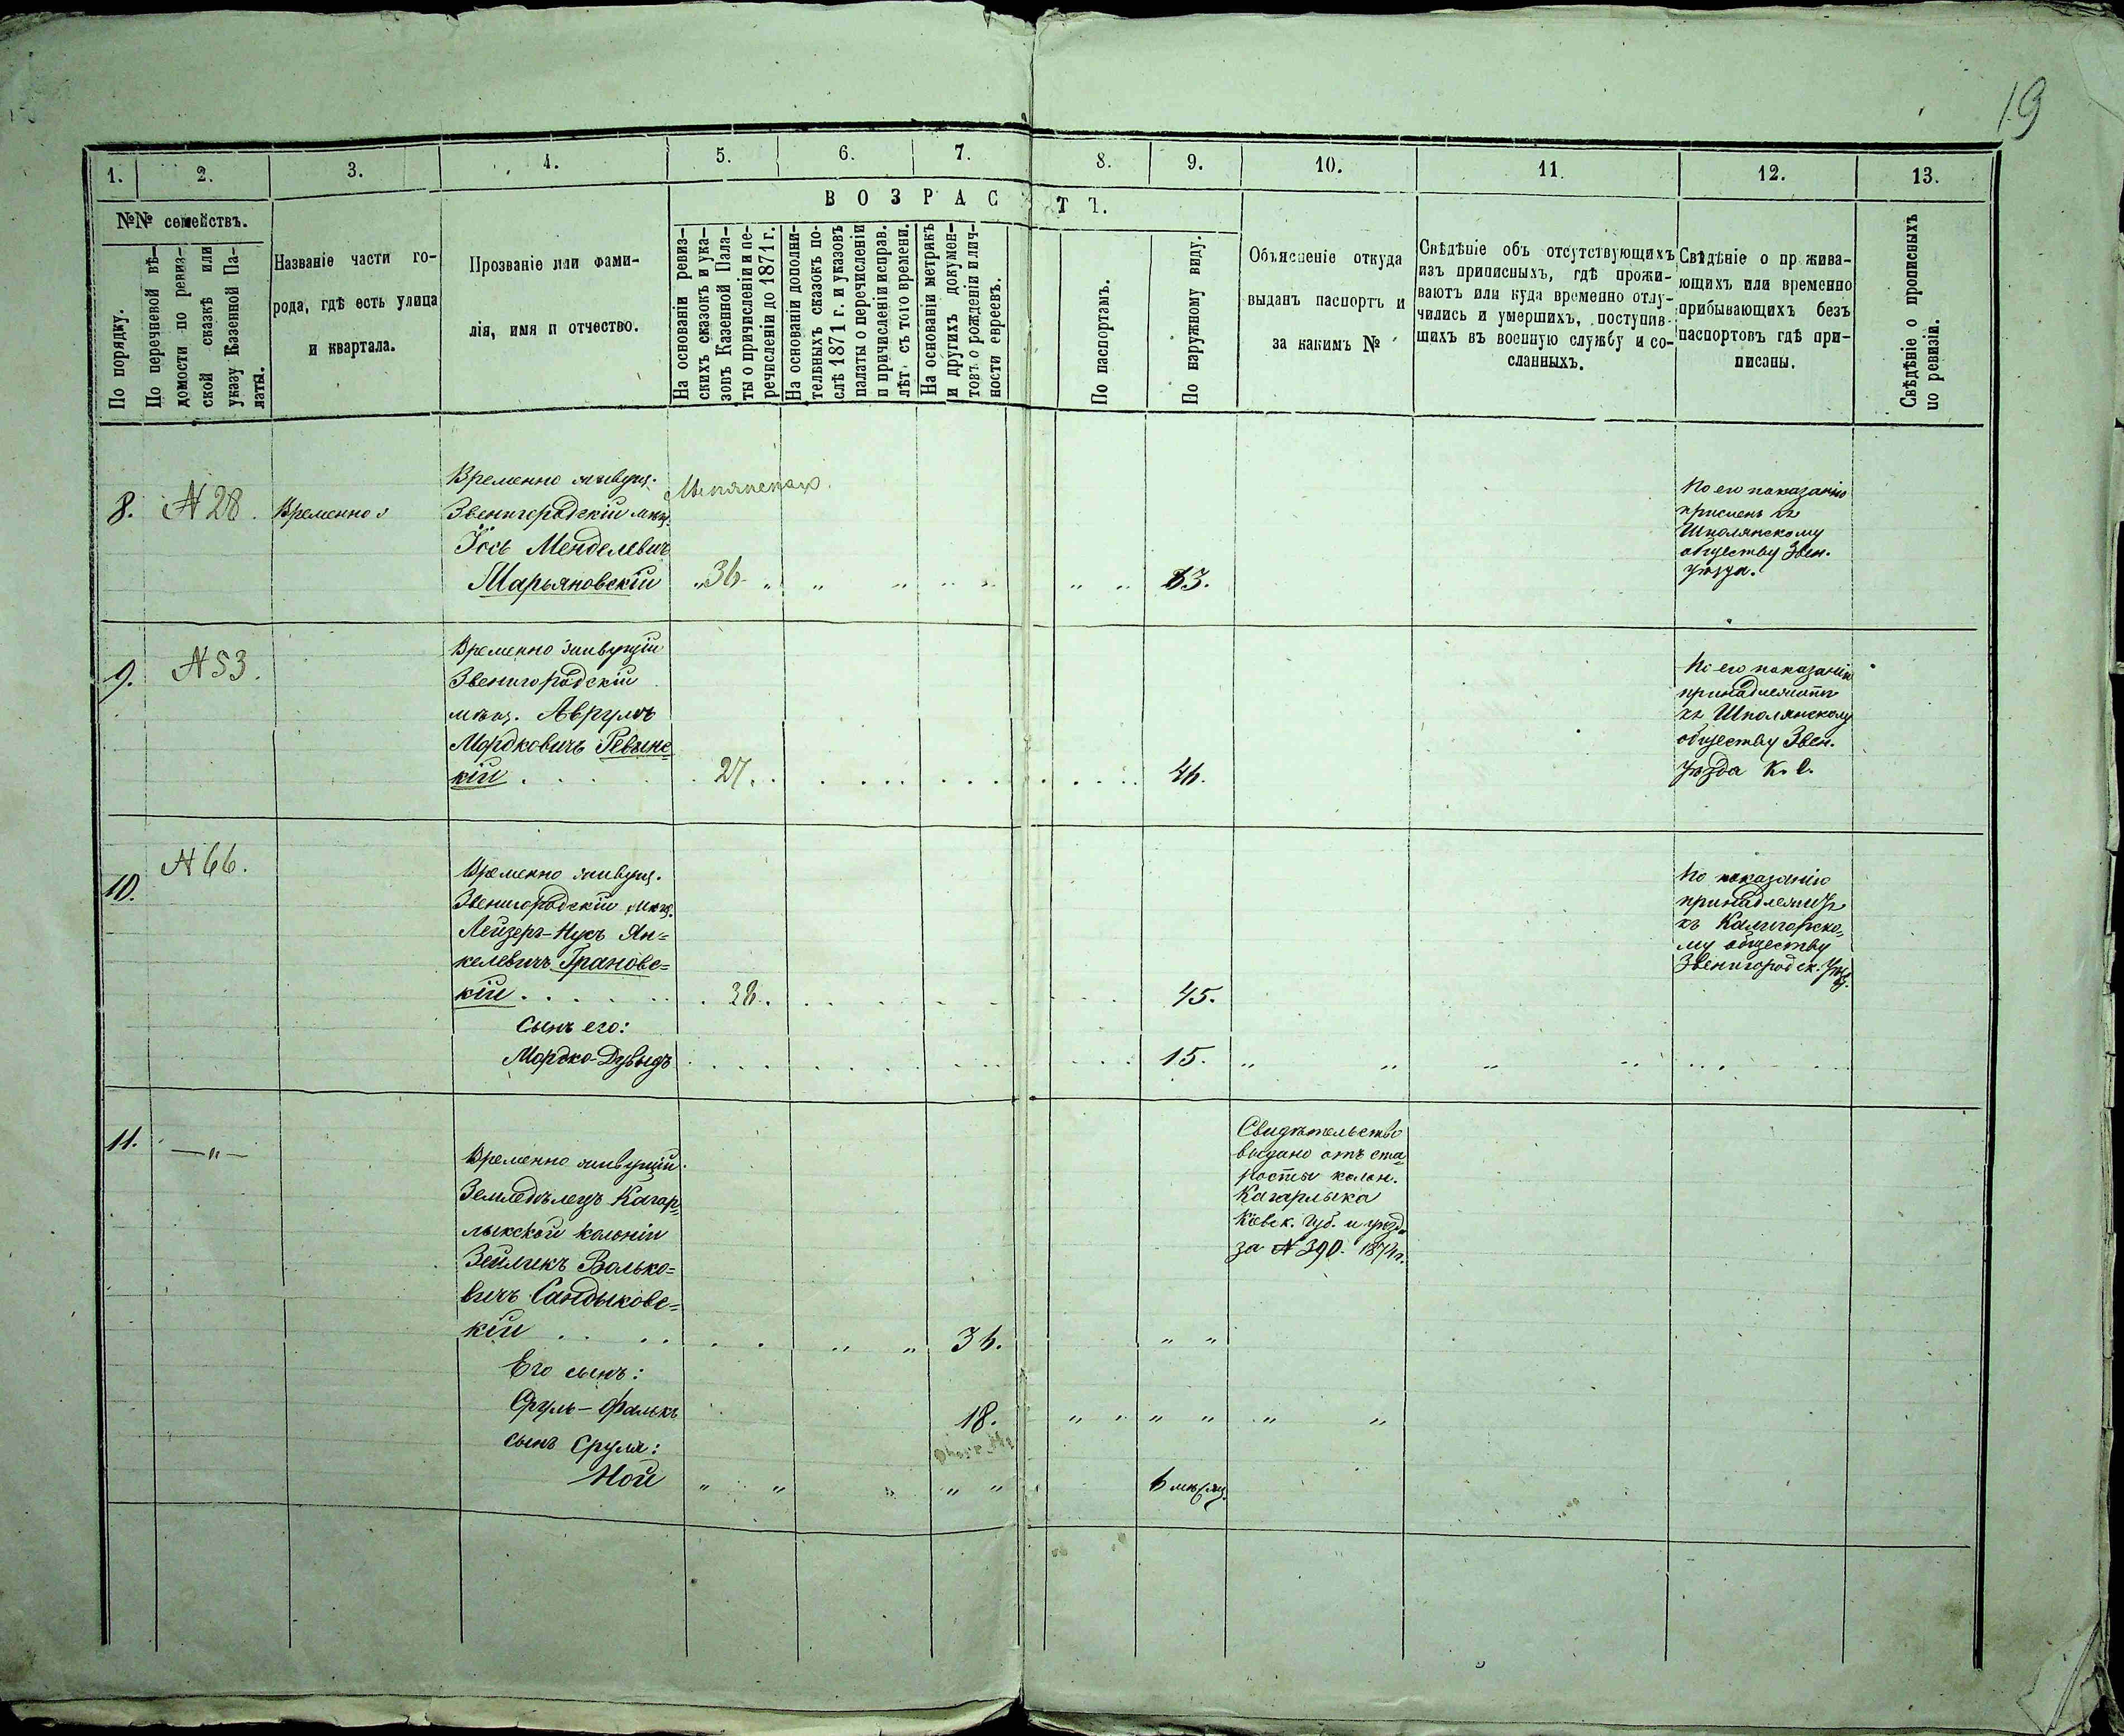 19
1. 2. 3. 4. 5. 6. 7. 8. 9. 10. 11. 12. 13.
№№ семействъ.
По порядку.
По перечневой вѣ-
домости по ревиз-
ской сказкѣ или
указу Казенной Па-
латы.
Названіе части го-
рода, гдѣ есть улица
и квартала.
Прозваніе или фами-
лія, имя и отчество.
ВОЗРАСТЪ.
На основаніи ревиз-
скихъ сказокъ и ука-
зовъ Казенной Пала-
ты о причисленіи и пе-
речисленіи до 1871 г.
На основаніи дополни-
тельныхъ сказокъ по-
слѣ 1871 г. и указовъ
палаты о перечисленіи
и причисленіи исправ.
лѣт. съ того времени.
На основаніи метрикъ
и другихъ докумен-
товъ о рожденіи и лич-
ности евреевъ.
По паспортамъ.
По наружному виду.
Объясненіе откуда
выданъ паспортъ и
за какимъ №
Свѣдѣніе объ отсутствующихъ
изъ приписныхъ, гдѣ прожи-
ваютъ или куда временно отлу-
чились и умершихъ, поступив-
шихъ въ военную службу и со-
сланныхъ.
Свѣдѣніе о прожива-
ющихъ или временно
прибывающихъ безъ
паспортовъ гдѣ при-
писаны.
Свѣдѣніе о прописныхъ
по ревизіи.
8. № 28. Временно
Временно живущ.
Звенигородскій мѣщ.
Іось Менделевичъ
Марьяновскій „ 36 „ „ „ „ „ „ „ 33.
По его показанію
къ
Шполянскому
обществу Звен.
уѣзда.
9. № 53.
Временно живущій
Звенигородскій
мѣщ. Аврумъ
Мордковичъ Ревзинс=
кій . . . 27. . . . 46.
По его показанію
принадлежитъ
къ Шполянскому
обществу Звен.
Уѣзда К. Г.
10. № 66.
Временно живущ.
Звенигородскій мѣщ.
Лейзеръ-Нусъ Ян=
келевичъ Грановс=
кій . . . . . 38. . . . 45.
Сынъ его:
Мордко-Дувыдъ . . . 15. „ „ „ „
По показанію
принадлежитъ
къ Калигорско=
му обществу
Звенигородск. Уѣзд.
11. —„—
Временно живущій
Земледѣлецъ Кагар=
лыкской колоніи
Зейликъ Волько=
вичъ Сандыковс=
кій . . . . „ „ 36. „ „
Свидѣтельство
выдано отъ ста=
росты колон.
Кагарлыка
Кіевск. Губ. и уѣзда
за № 390. 1874 г.
Его сынъ:
Сруль-Фалькъ 18. „ „ „ „ „ „
сынъ Сруля:
Ной „ „ „ „ „ 6 мѣсяц.